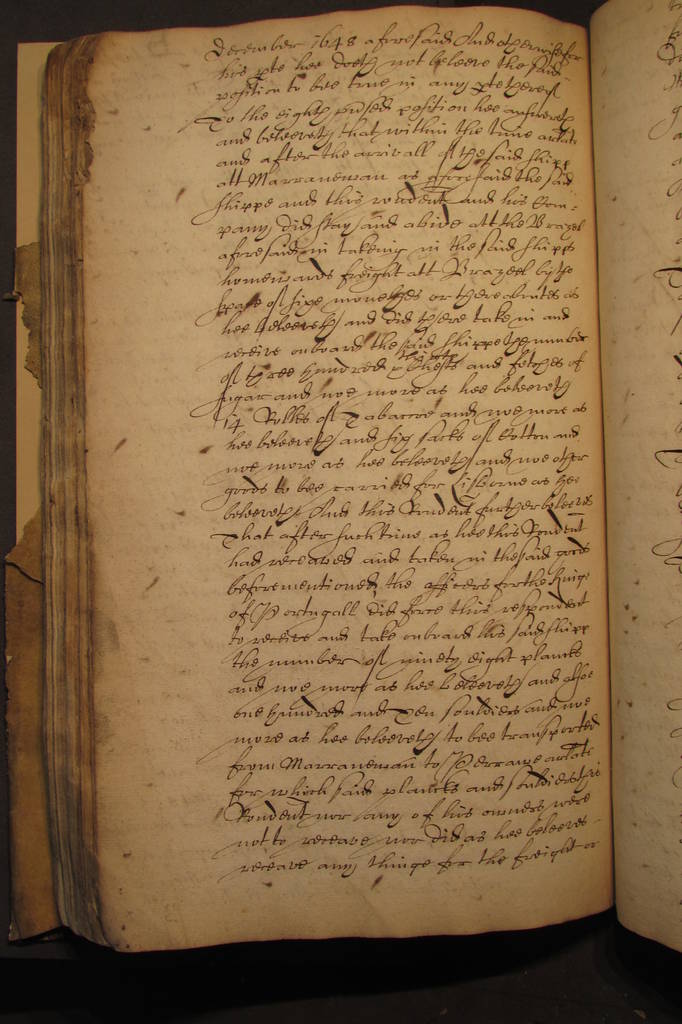 December 1648 aforesaid And otherwise for
his pte hee doeth not beleeve the said
position to bee true in any pte thereof
To the eighth pnsed position hee answereth
and beleeveth that within the tyme arlate
and after the arrivall of the said shipp
att Marranewan as aforesaid the said
shippe and this rondent and his Com¬
pany did stay and abide att the Brazeel
aforesaid in takeing in the said shipps
homewards freight att Brazeel by the
space of sixe monethes or thereabouts as
hee beleeveth and did there take in and
receive onboard the said shippe the number
of three hundred
thirty
Chests and fetches of
sugar and noe more as hee beleeveth
14 Rolles of Tabaccoe and noe more as
hee beleeveth and six sacks of Cotton and
noe more as hee beleeveth and noe other
goods to bee carried for Lisborne as hee
beleeveth And this Rondent further beleeves
That after such time as hee this Rondent
had receaved and taken in the said goods
beforementioned, the officers for the Kinge
of Portugall did force this respondent
to receive and take onboard his said shipp
the number of ninety eight plancks
and noe more as hee beleeveth and alsoe
one hundred and Ten souldiers and noe
more as hee beleeveth to bee transported
from Marranewan to Pherrara arlate
for which said plancks and souldiers this
Rondent nor any of his owners were
not to receave nor did as hee beleeves
receave any thinge for the freight or